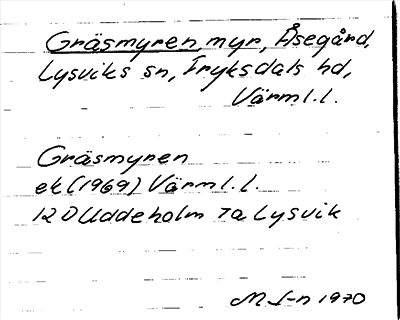 Gräsmyren, myr, Åsegård,
Lysviks sn, Fryksdals hd,
Värml.l.
Gräsmyren
ek (1969) Värml.l.
12 D Uddeholm 7a Lysvik
M J-n 1970